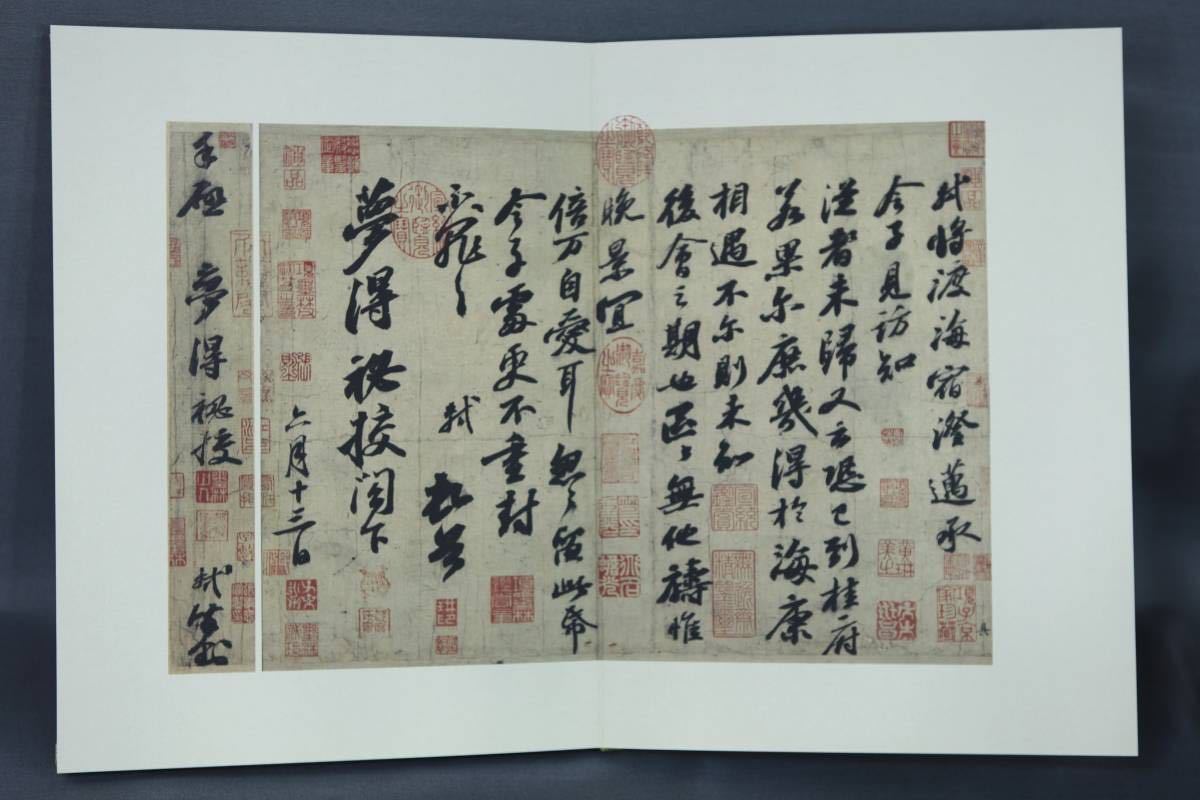 軾將渡海宿澄邁承
令子見訪知
從者未歸又云恐已到桂府
若果尔庶幾得於海康
相遇不尔則未知
後會之期也區區無他禱惟
晚景宜
倍万自愛耳怱怱留此帋
令子處更不重封
不罪不罪 軾頓首
夢得祕校閤下
六月十三日
手啟 夢得祕校 軾謹封